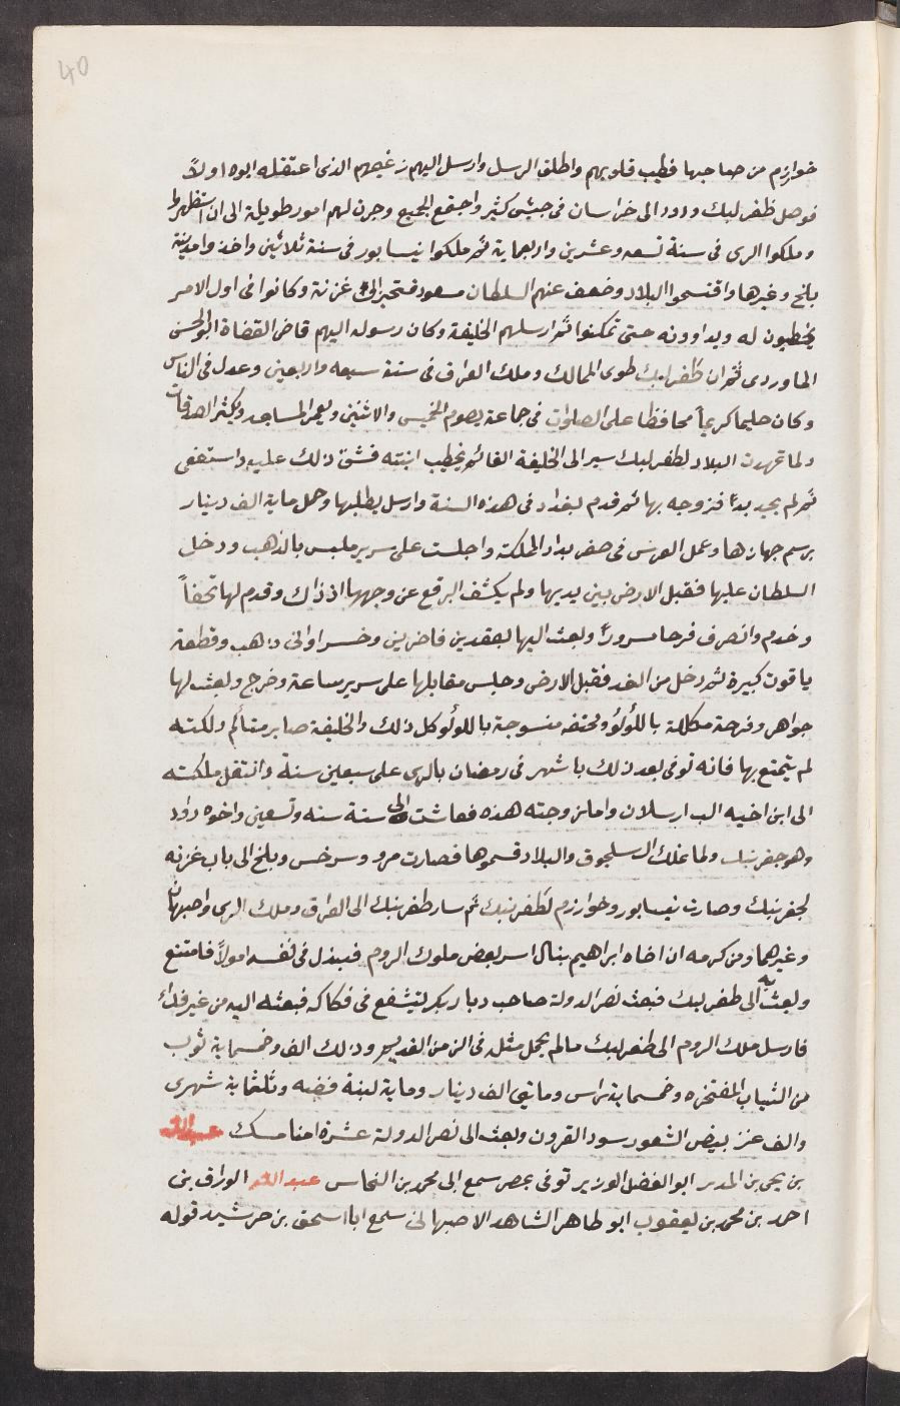 40
خوارزم من صاحبها فطيب قلوبهم واطلق الرسل وارسل اليهم زعيمهم الذى اعتقله ابوه اولاً
فوصل طغرلبك وداود الى خراسان فى جيش كثير واجتمع الجميع وجرت لهم امور طويلة الى ان استظهروا
وملكوا الرى فى سنة تسعه وعشرين واربعماية ثم ملكوا نيسابور فى سنة ثلاثين واخذوا مدينة
بلخ وغيرها واقتسموا البلاد وضعف عنهم السلطان مسعود فتحيز الى غزنة وكانوا فى اول الامر
يخطبون له ويداودنه حتى تمكنوا ثم ارسلهم الخليفة وكان رسوله اليهم قاضى القضاة ابو الحسن
الماوردى ثم ان طغرلبك طوى الممالك وملك العراق فى سنة سبعه واربعين وعدل فى الناس
وكان حليما كريماً محافظا على الصلوات فى جماعة يصوم الخميس والاثنين ويعمر المساجد ويكثر الصدقات
ولما تمهدت البلاد لطغرلبك سير الى الخليفة القائم يخطب ابنته فشق ذلك عليه واستعفى
ثم لم يجد بدًا فزوجه بها ثم قدم بغداد فى هذه السنة وارسل يطلبها وحمل ماية الف دينار
برسم جهازها وعمل العرس فى صفر بدار المملكته واجلست على سرير ملبس بالذهب ودخل
السلطان عليها فقبل الارض بين يديها ولم يكشف البرقع عن وجهها اذ ذاك وقدم لها تحفاً
وخدم وانصرف فرحا مسروراً وبعث اليها بعقدين فاخرين وخسراوانى ذهب وقطعة
ياقوت كبيرة ثم دخل من الغد فقبل الارض وجلس مقابلها على سرير ساعة وخرج وبعث لها
جواهر وفرجة مكللة باللؤلؤ ومخنقه منسوجة باللولو كل ذلك والخليفة صابر متألم ولكنه
لم يتمتع بها فانه توفى بعد ذلك باشهر فى رمضان بالرى على سبعين سنة وانتقل ملكته
الى ابن اخيه الب ارسلان واما زوجته هذه فعاشت الى سنة سته وتسعين واخوه داود
وهو جغربنك ولما تملك ال سلجوق والبلاد قسموها فصارت مرو وسرخس وبلخ الى باب غزنه
لجغربنك وصارت نيسابور وخوارزم لطغربنك ثم سار طغربنك الى العراق وملك الرى واصبهان
وغيرهما ومن كرمه ان اخاه ابراهيم ينال اسر بعض ملوك الروم فبذل فى نفسه اموالاً فامتنع
وبعث به الى طغرلبك فبعث نصر الدولة صاحب ديار بكر ليشفع فى فكاكه فبعثه اليه من غير فداء
فارسل ملك الروم الى طغرلبك مالم يحمل مثله فى الزمن القديم وذلك الف وخمسماية ثوب
من الثياب المفتخره وخمسماية راس ومايتى الف دينار وماية لبنة فضه وثلثماية شهرى
والف عنز بيض الشعور سود القرون وبعث الى نصر الدولة عشرة امنا مسك عبيد الله
بن يحى بن المدبر ابو الفضل الوزير توفى بمصر سمع ابى محمد بن النحاس عبد الله الوراق بنى
احمد بن محمد بن يعقوب ابو طاهر الشاهد الاصبهانى سمع ابا اسحق بن خرشيد قوله